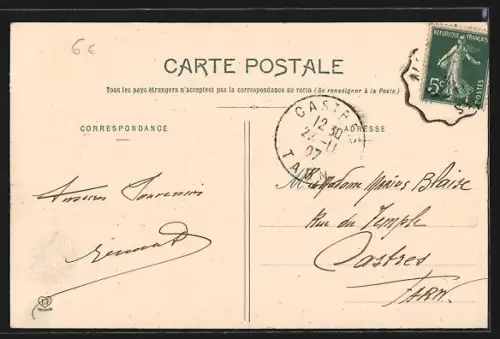 6€
CARTE POSTALE
Tous les pays étrangers n'acceptent pas la correspondance au recto (Se renseigner à la Poste)
CORRESPONDANCE
ADRESSE
REPUBLIQUE FRANÇAISE
5c
POSTES
CASTRES
12 30
22-11
07
TARN
Souvenirs
Madame Marius Blaise
Rue du Temple
Castres
TARN